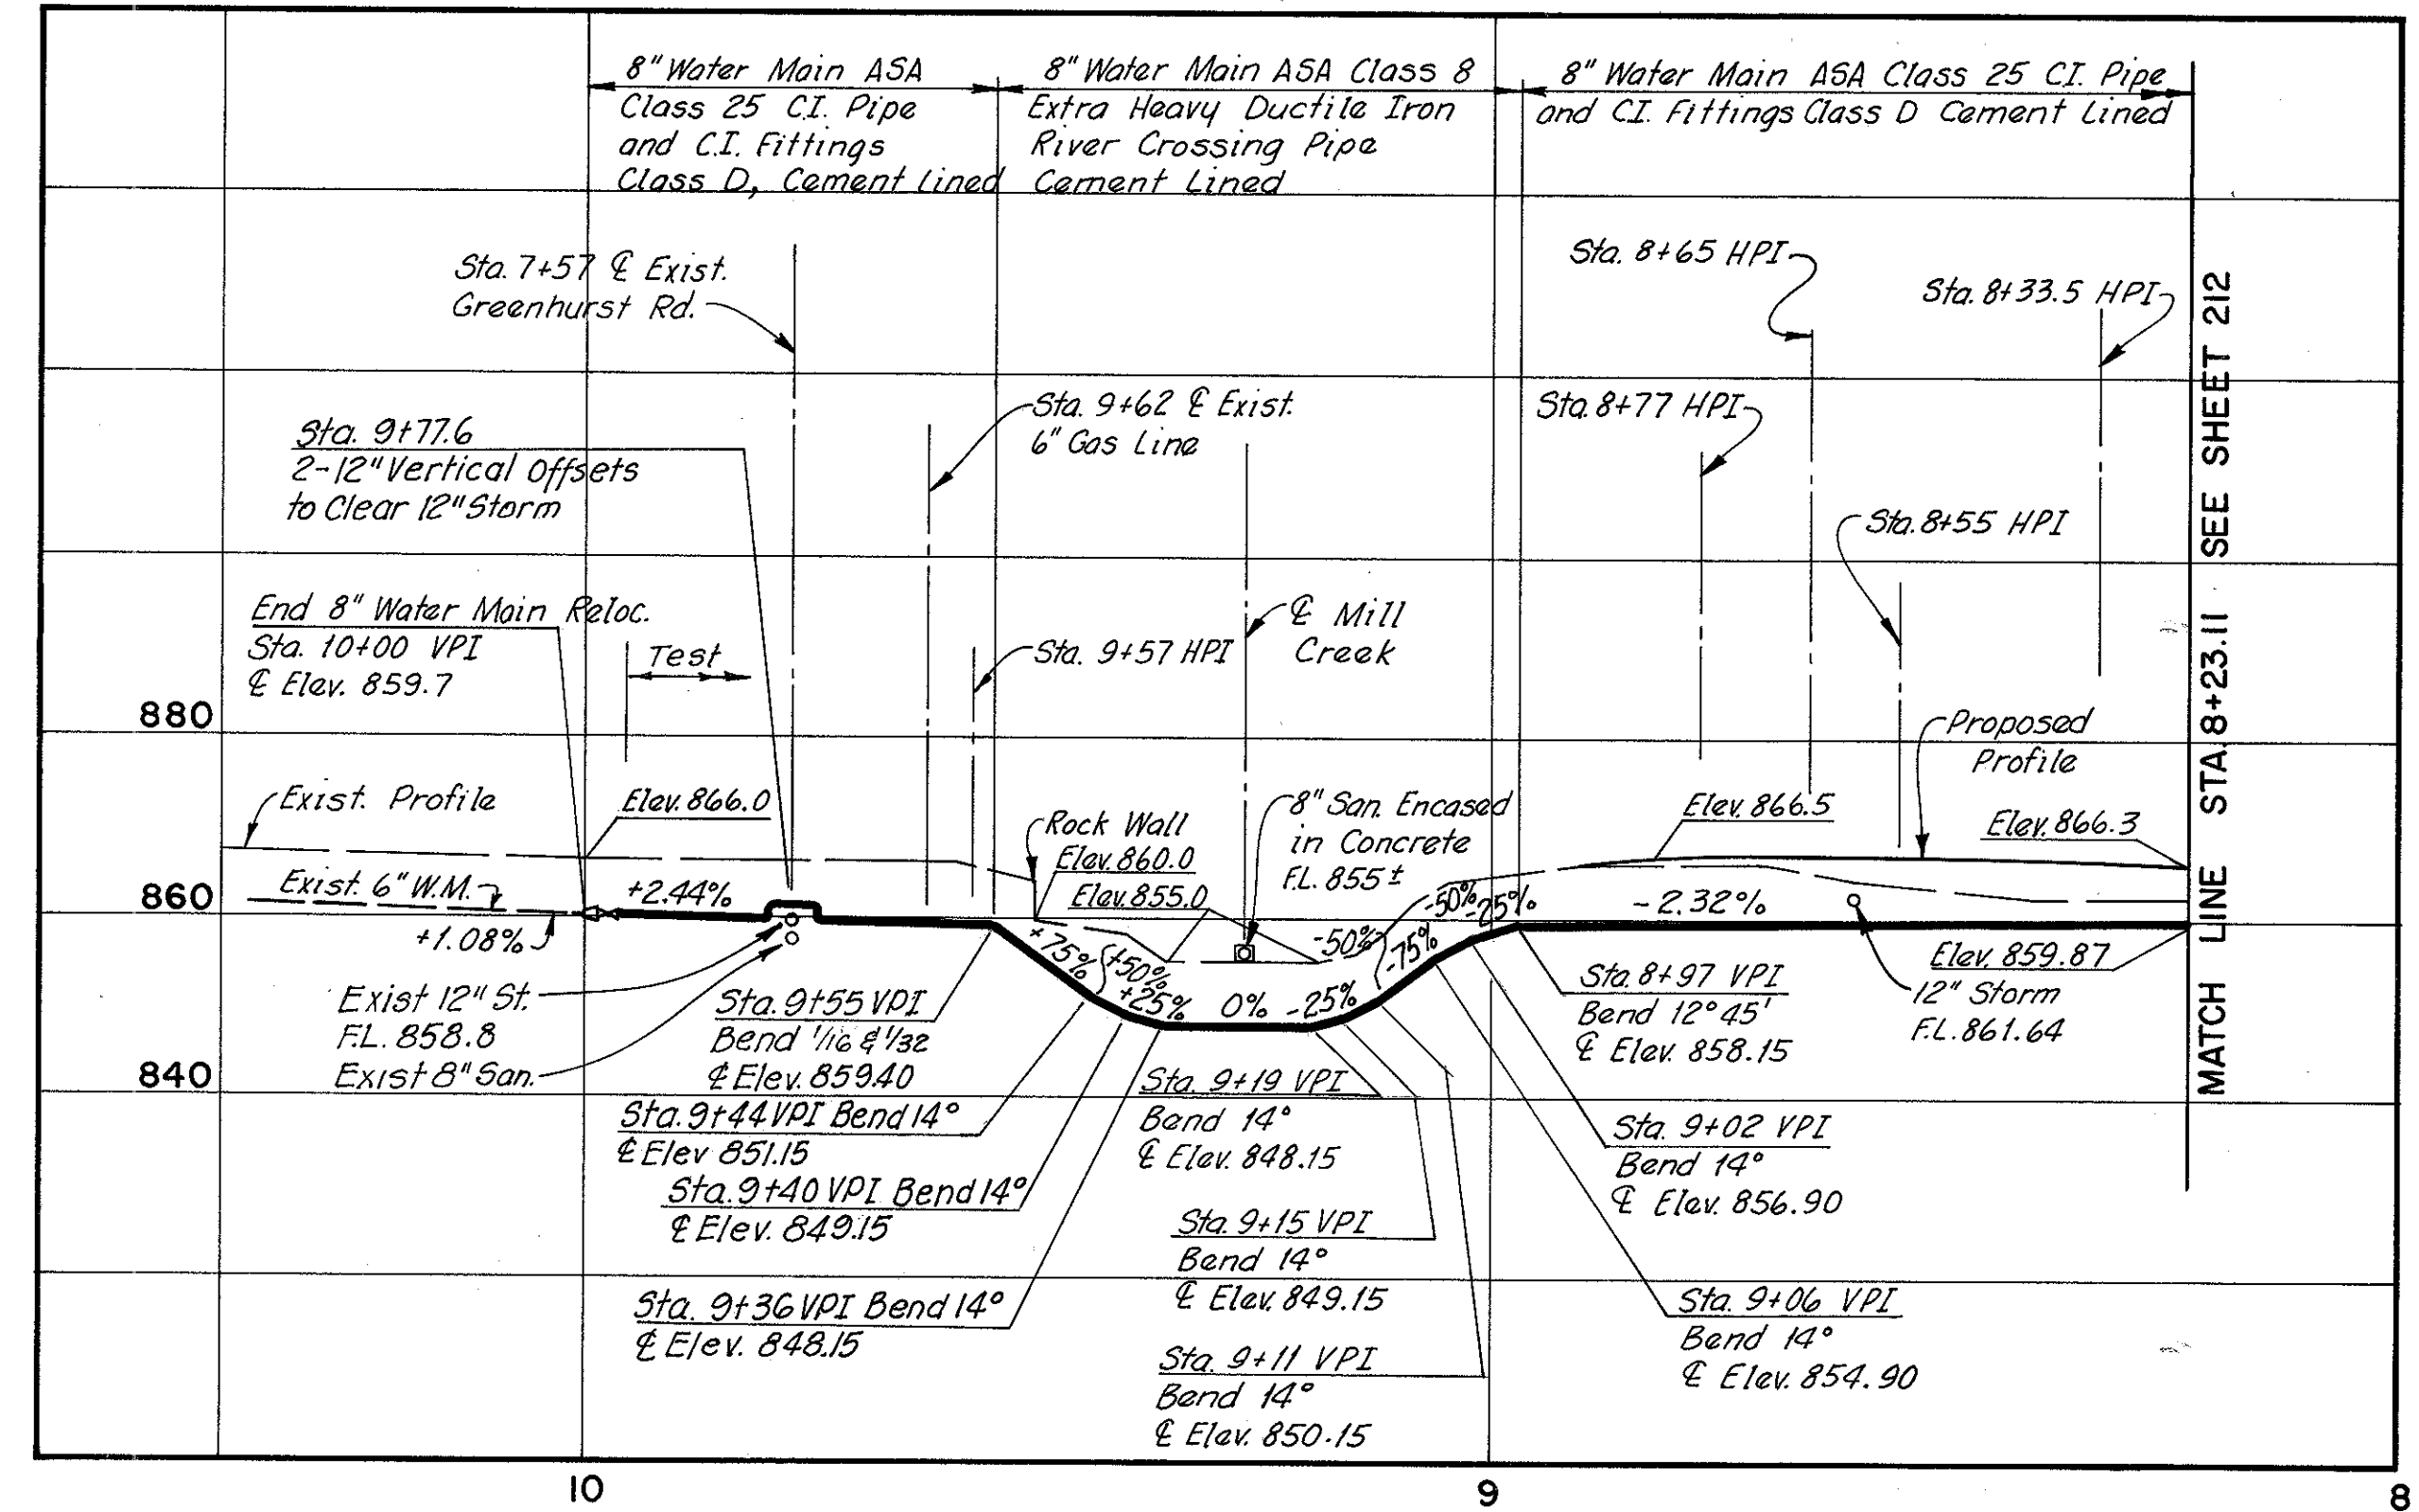 8" Water Main ASA
Class 25 C.I. Pipe
and C.I. Fittings
Class D, Cement Lined
8" Water Main ASA Class 8
Extra Heavy Ductile Iron
River Crossing Pipe
Cement Lined
8" Water Main ASA Class 25 CI. Pipe
and CI. Fittings Class D Cement Lined
Sta. 7+57 ℄ Exist.
Greenhurst Rd.
Sta. 8+65 HPI
Sta. 8+33.5 HPI
Sta. 9+62 ℄ Exist.
6" Gas Line
Sta. 8+77 HPI
Sta. 9+77.6
2-12" Vertical Offsets
to Clear 12" Storm
Sta. 8+55 HPI
End 8" Water Main Reloc.
Sta. 10+00 VPI
℄ Elev. 859.7
Test
Sta. 9+57 HPI
℄ Mill
Creek
MATCH LINE STA. 8+23.11 SEE SHEET 212
880
Proposed
Profile
Exist. Profile
Elev. 866.0
Rock Wall
Elev. 860.0
Elev. 855.0
8" San. Encased
in Concrete
F.L. 855±
Elev. 866.5
Elev. 866.3
860
Exist. 6" W.M.
+2.44%
+1.08%
+75%
+50%
+25%
0%
-25%
-50%
-75%
-50%
-25%
-2.32%
Elev. 859.87
12" Storm
F.L. 861.64
Exist 12" St.
F.L. 858.8
Exist 8" San.
840
Sta. 9+55 VPI
Bend 1/16 & 1/32
℄ Elev. 859.40
Sta. 8+97 VPI
Bend 12°45'
℄ Elev. 858.15
Sta. 9+44 VPI Bend 14°
℄ Elev 851.15
Sta. 9+19 VPI
Bend 14°
℄ Elev. 848.15
Sta. 9+02 VPI
Bend 14°
℄ Elev. 856.90
Sta. 9+40 VPI Bend 14°
℄ Elev. 849.15
Sta. 9+15 VPI
Bend 14°
℄ Elev. 849.15
Sta. 9+36 VPI Bend 14°
℄ Elev. 848.15
Sta. 9+06 VPI
Bend 14°
℄ Elev. 854.90
Sta. 9+11 VPI
Bend 14°
℄ Elev. 850.15
10
9
8